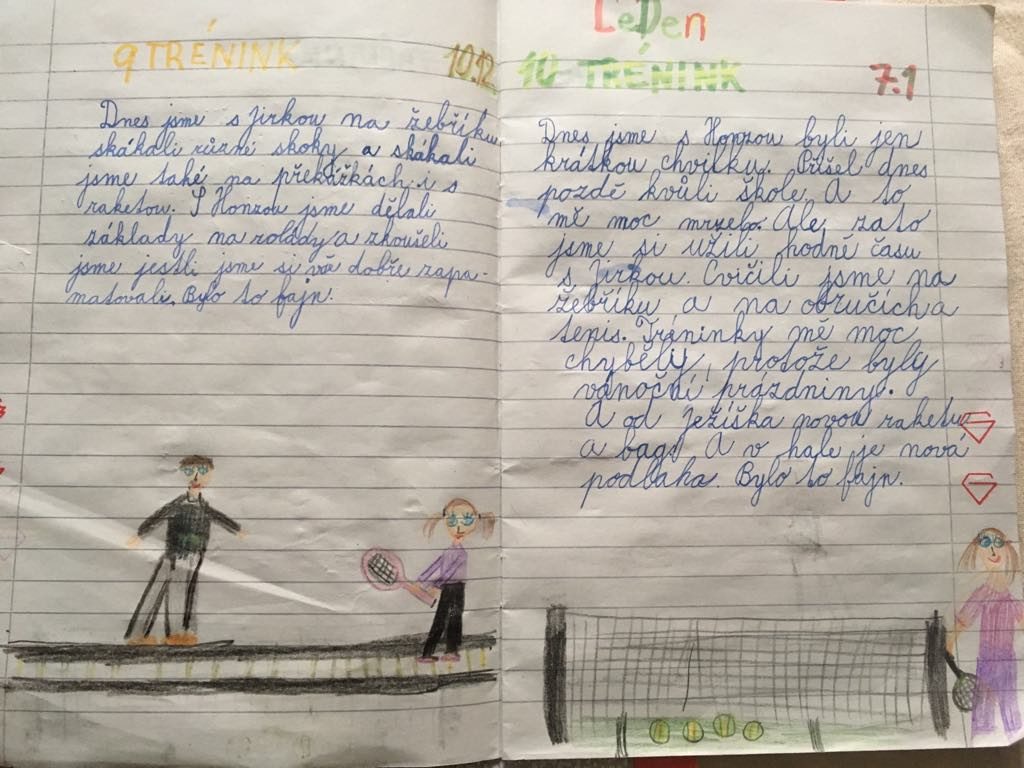 9 TRÉNINK 10.12
Dnes jsme s Jirkou na žebříku
skákali různé skoky a skákali
jsme také na překážkách i s
raketou. S Honzou jsme dělali
základy na rolády a zkoušeli
jsme jestli jsme si vše dobře zapa-
matovali. Bylo to fajn.
LeDen
10 TRÉNINK 7.1
Dnes jsme s Honzou byli jen
krátkou chvilku. Přišel dnes
pozdě kvůli škole. A to
mě moc mrzelo. Ale zato
jsme si užili hodně času
s Jirkou. Cvičili jsme na
žebříku a na obručích a
tenis. Tréninky mě moc
chyběly, protože byly
vánoční prázdniny.
A od Ježíška novou raketu
a bag! A v hale je nová
podlaha. Bylo to fajn.